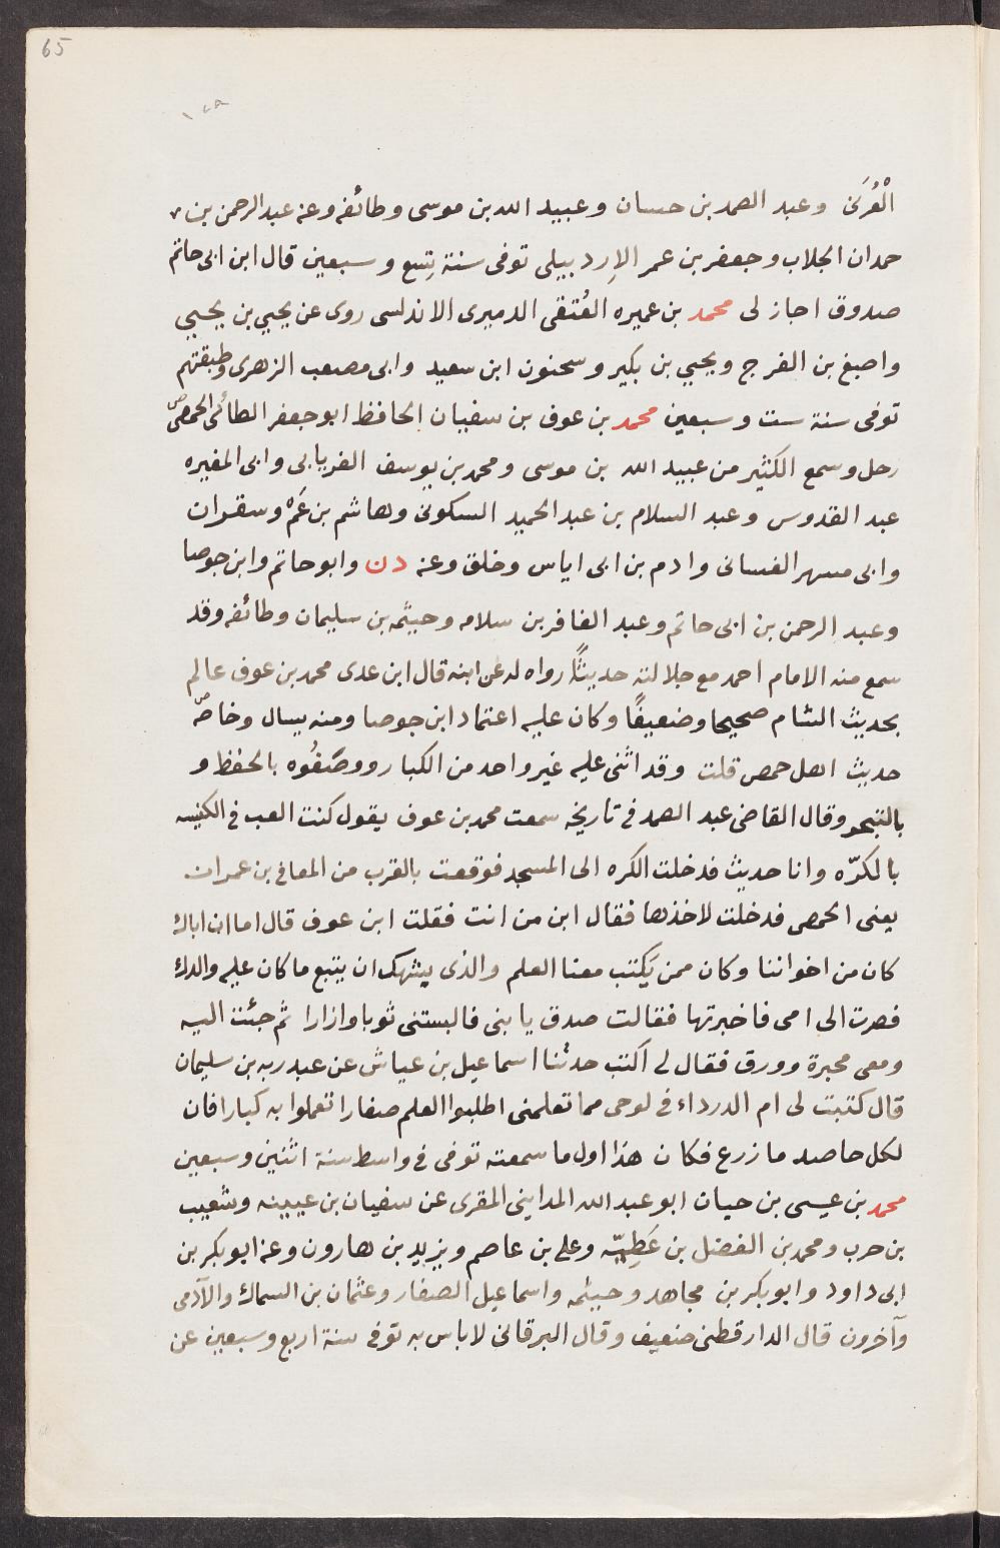 65
١٢٨
الْعُرَنى وعبد الصمد بن حسان وعبيد الله بن موسى وطائفه وعنه عبد الرحمن بن
حمدان الجلاب وجعفر بن عمر الاِردبيلى توفى سنة تِسع وسبعين قال ابن ابى حاتم
صدوق اجاز لى محمد بن عميره العُتقى الدميرى الاندلسى روى عن يحيي بن يحيي
واصبغ بن الفرج ويحيي بن بكير وسحنون ابن سعيد وابى مصعب الزهرى وطبقتهم
توفى سنة ست وسبعين محمد بن عوف بن سفيان الحافظ ابو جعفر الطائى الحمصى
رحل وسمع الكثير من عبيد الله بن موسى ومحمد بن يوسف الفريابى وابى المغيره
عبد القدوس وعبد السلام بن عبد الحميد السكونى وهاشم بن عَمْرو وسقران
وابى مسهر الغسانى وادم بن ابى اياس وخلق وعنه دن وابو حاتم وابن جوصا
وعبد الرحمن بن ابى حاتم وعبد الغافر بن سلامه وحيثمه بن سليمان وطائفه وقد
سمع منه الامام احمد مع جلالته حديثًا رواه له عن ابنه قال ابن عدى محمد بن عوف عالم
بحديث الشام صحيحا وضعيفًا وكان عليه اعتماد ابن جوصا ومنه يسال وخاصّ
حديث اهل حمص قلت وقد اثنى عليه غير واحد من الكبار ووصَفُوه بالحفظ و
بالتبحر وقال القاضى عبد الصمد فى تاريخه سمعت محمد بن عوف يقول كنت العب فى الكنيسه
بالكرّه وانا حديث فدخلت الكره الى المسجد فوقعت بالقرب من المعافى بن عمران
يعنى الحمصى فدخلت لاخذها فقال ابن من انت فقلت ابن عوف قال اما ان اباك
كان من اخواننا وكان ممن يَكتب معنا العلم والذى يشبهك ان يتبع ما كان عليه والدك
فصرت الى امى فاخبرتها فقالت صدق يا بنى فالبستنى ثوبا وازارا ثم جئت اليه
ومعى محبرة وورق فقال لى اكتب حدثنا اسماعيل بن عياش عن عبد ربه بن سليمان
قال كتبت لى ام الدرداء فى لوحى مما تعلمنى اطلبوا العلم صغارا تعملوا به كبارا فان
لكل حاصد ما زرع فكان هذا اول ما سمعته توفى فى واسط سنة اثنين وسبعين
محمد بن عيسى بن حيان ابو عبد الله المداينى المقرى عن سفيان بن عيينه وشعيب
بن حرب ومحمد بن الفضل بن عَطِيّه وعلى بن عاصم ويزيد بن هارون وعنه ابو بكر بن
ابى داود وابو بكر بن مجاهد وحيثمه واسماعيل الصفار وعثمان بن السماك والآدمى
وآخرون قال الدارقطنى ضعيف وقال البرقانى لا باس به توفى سنة اربع وسبعين عن